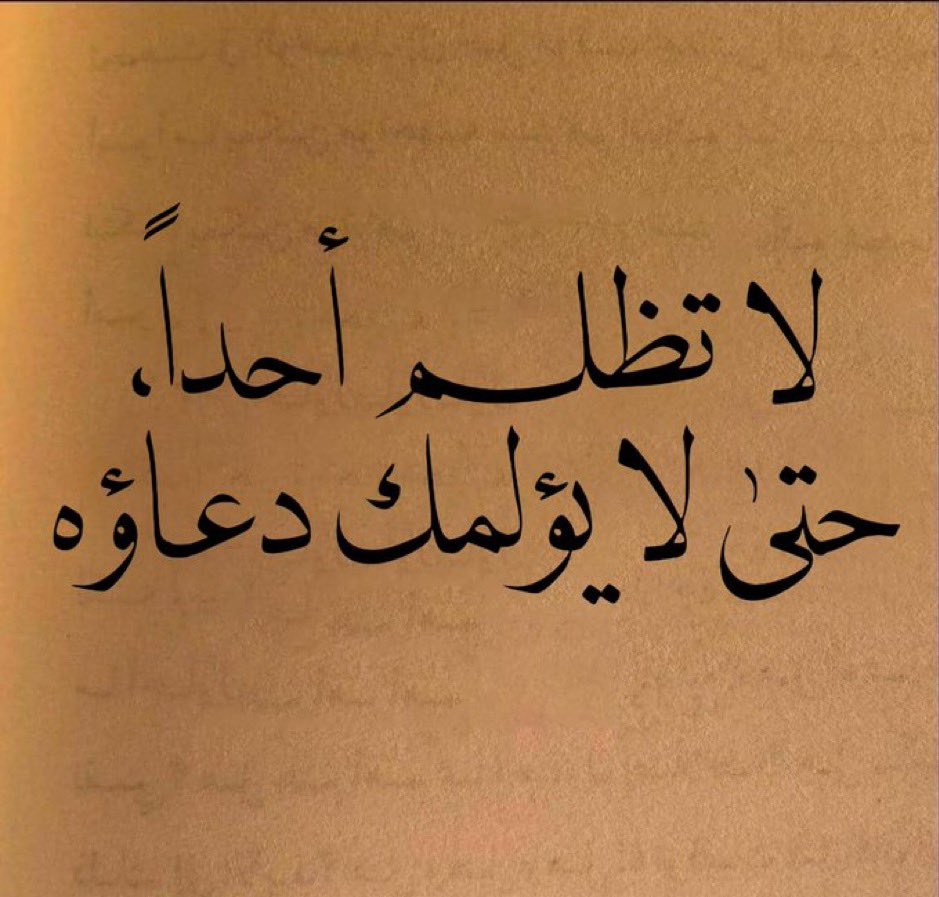 لا تظلم أحداً،
حتىٰ لا يؤلمك دعاؤه